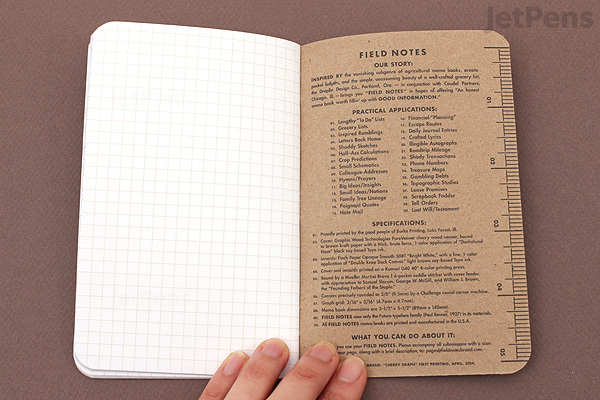 JetPens
FIELD NOTES
OUR STORY:
INSPIRED BY the vanishing subgenre of agricultural memo books, ornate
pocket ledgers, and the simple, unassuming beauty of a well-crafted grocery list,
the Draplin Design Co., Portland, Ore. — in conjunction with Coudal Partners,
Chicago, Ill. — brings you "FIELD NOTES" in hopes of offering "An honest
memo book worth fillin' up with GOOD INFORMATION."
PRACTICAL APPLICATIONS:
01. Lengthy "To Do" Lists
02. Grocery Lists
03. Inspired Ramblings
04. Letters Back Home
05. Shoddy Sketches
06. Half-Ass Calculations
07. Crop Predictions
08. Small Schematics
09. Colleague Addresses
10. Hymns/Prayers
11. Big Ideas/Insights
12. Small Ideas/Notions
13. Family Tree Lineage
14. Poignant Quotes
15. Hate Mail
16. Financial "Planning"
17. Escape Routes
18. Daily Journal Entries
19. Crafted Lyrics
20. Illegible Autographs
21. Roadtrip Mileage
22. Shady Transactions
23. Phone Numbers
24. Treasure Maps
25. Gambling Debts
26. Topographic Studies
27. Loose Promises
28. Scrapbook Fodder
29. Tall Orders
30. Last Will/Testament
SPECIFICATIONS:
01. Proudly printed by the good people of Burke Printing, Lake Forest, Ill.
02. Cover: Graphic Wood Technologies PureVeneer cherry wood veneer, bound
to brown kraft paper with a thick, brute force, 1-color application of "Dachshund
Nose" black soy-based Toyo ink.
03. Innards: Finch Paper Opaque Smooth 50#T "Bright White," with a fine, 1-color
application of "Double Knee Duck Canvas" light brown soy-based Toyo ink.
04. Cover and innards printed on a Komori G40 40" 6-color printing press.
05. Bound by a Mueller Martini Bravo T 6-pocket saddle stitcher with cover feeder,
with appreciation to Samuel Slocum, George W. McGill, and William J. Brown,
the "Founding Fathers of the Staple."
06. Corners precisely rounded to 3/8" (9.5mm) by a Challenge round-corner machine.
07. Graph grid: 3/16" x 3/16" (4.7mm x 4.7mm).
08. Memo book dimensions are 3-1/2" x 5-1/2" (89mm x 140mm).
09. FIELD NOTES uses only the Futura typeface family (Paul Renner, 1927) in its materials.
10. All FIELD NOTES memo books are printed and manufactured in the U.S.A.
WHAT YOU CAN DO ABOUT IT:
you use your FIELD NOTES. Please accompany all submissions with a scan
your page, along with a brief description, to: pages@fieldnotesbrand.com.
BRAND: "CHERRY GRAPH" FIRST PRINTING, APRIL, 2014.
01
02
03
04
05